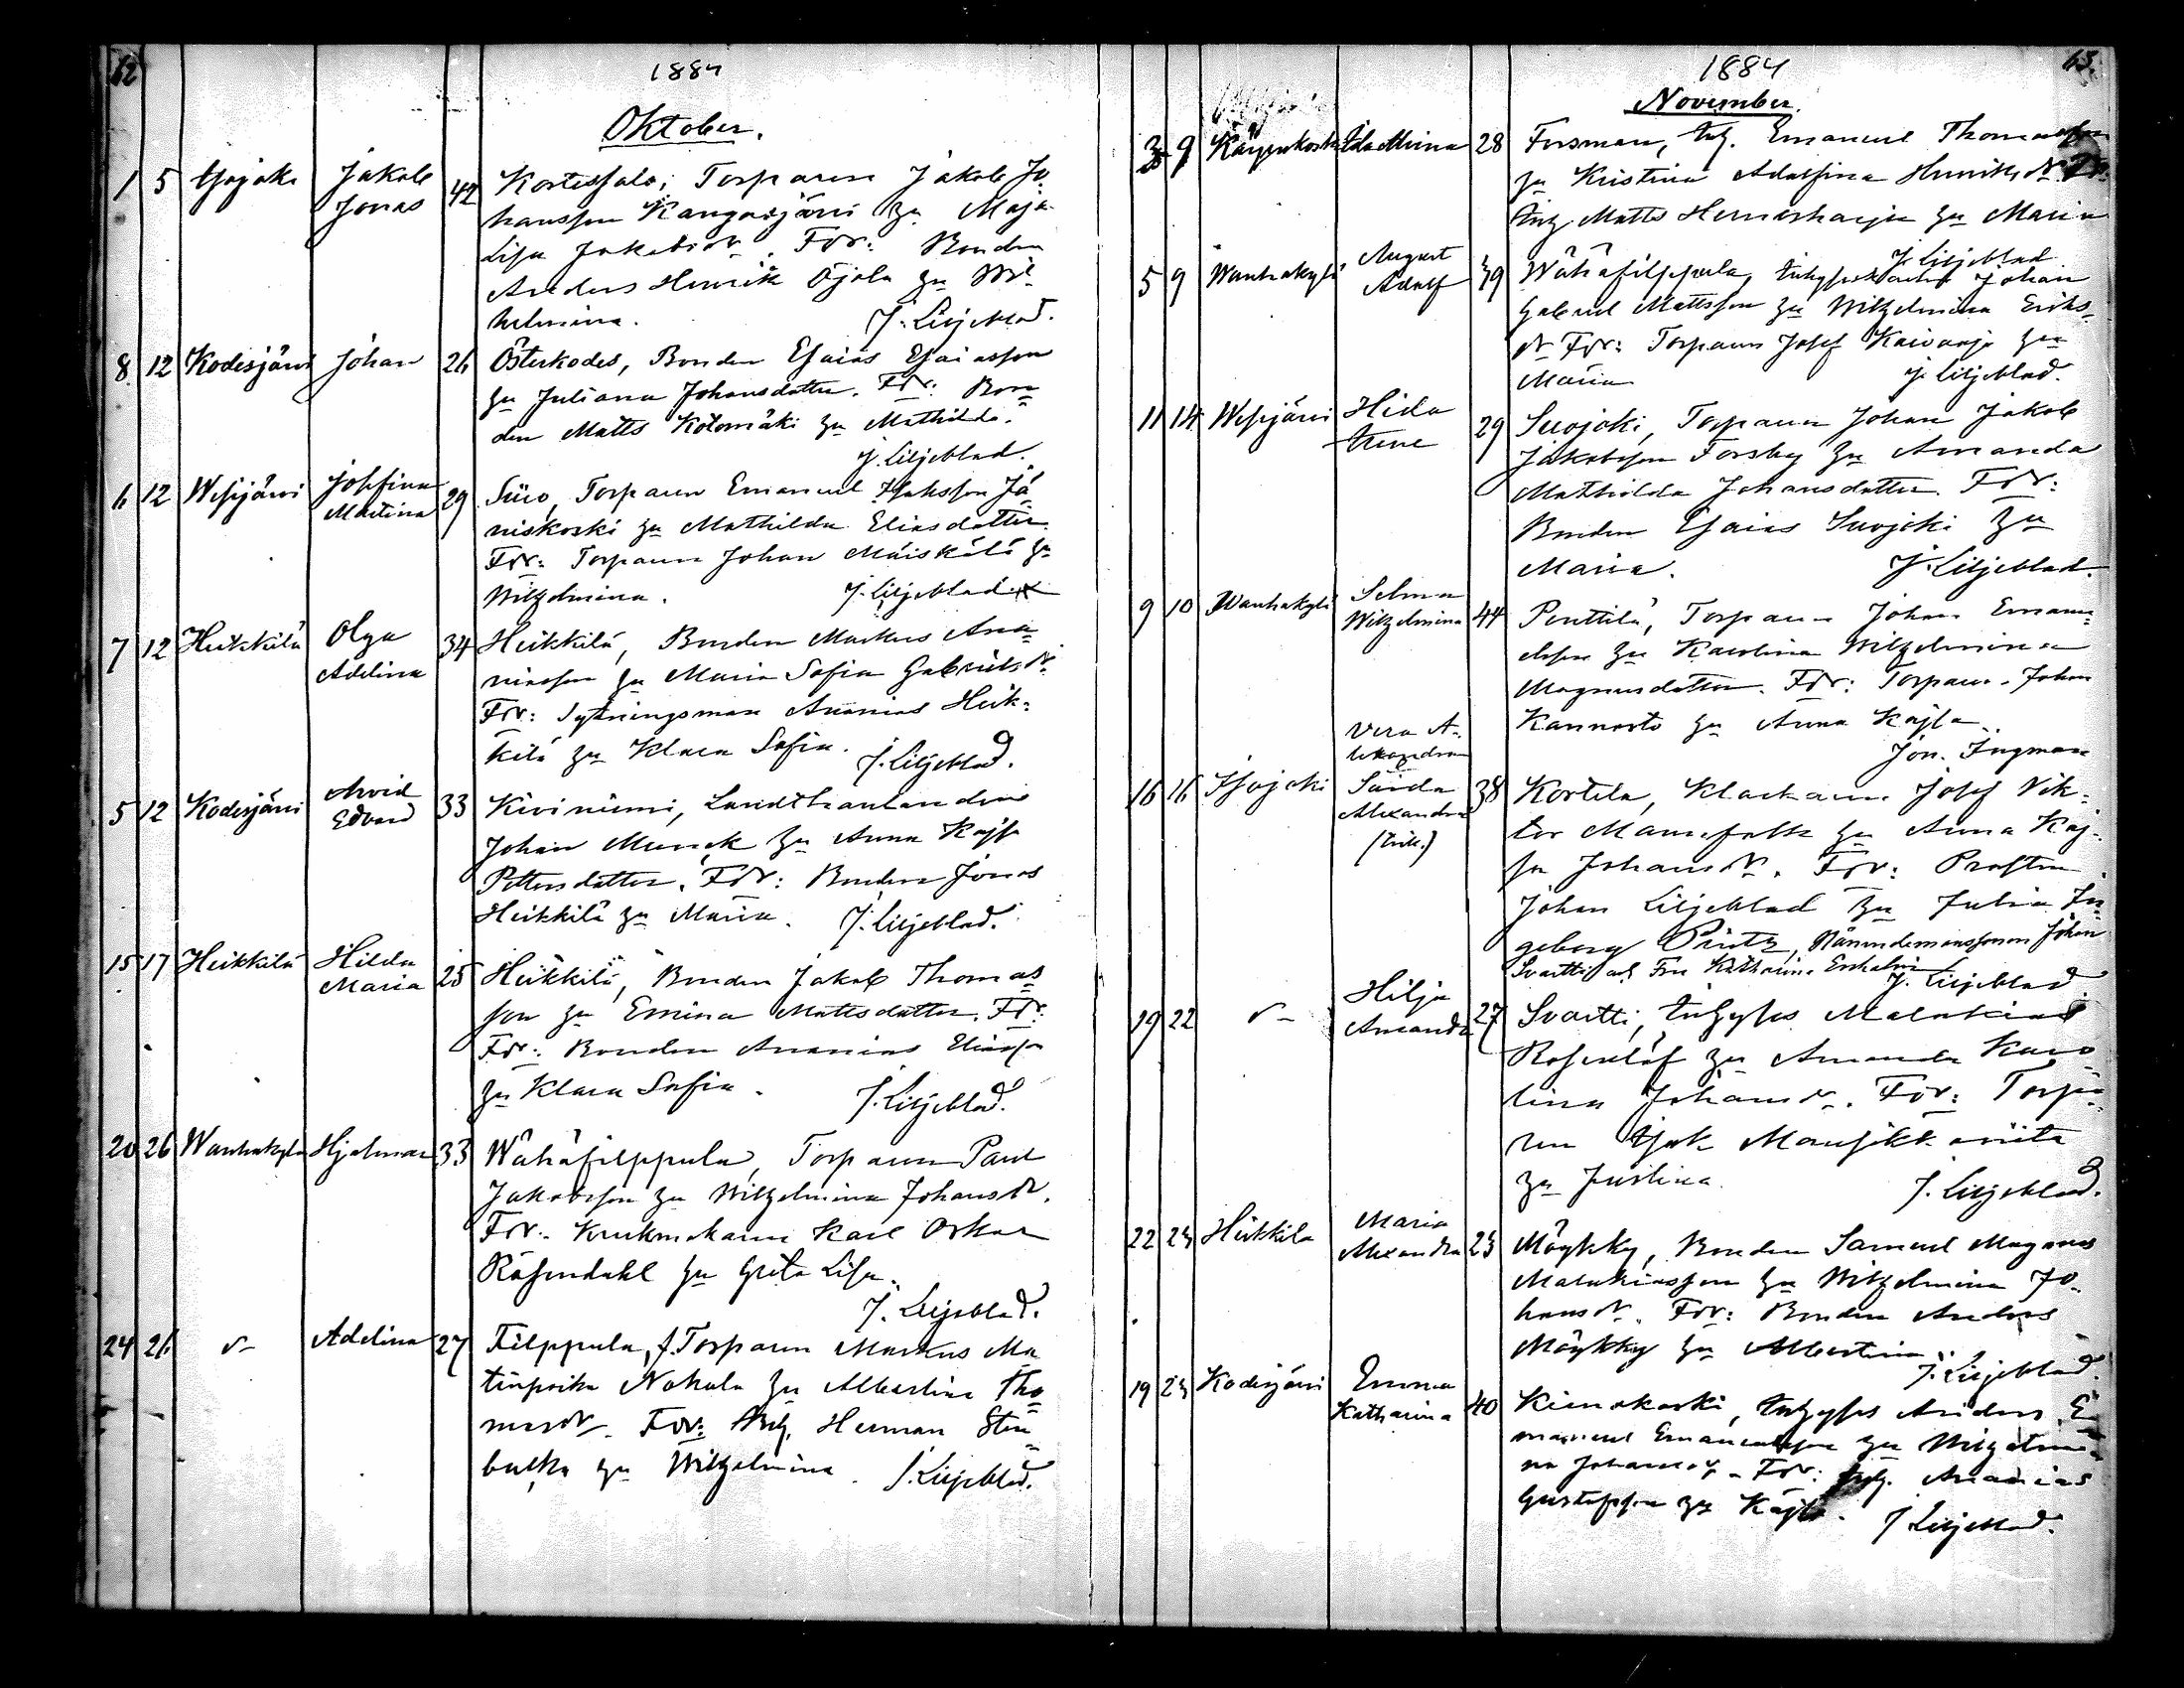 12
1884
Oktober.
1 5 Isojoki Jakob Jonas 42 Kortessalo, Torparen Jakob Jo=
hansson Kangasjärvi hu Maja
Lisa Jakobsdr. Fdr: Bonden
Anders Henrik Ojala hu Wil=
helmina. J. Liljeblad.
8 12 Kodesjärvi Johan 26 Österkodes, Bonden Esaias Esaiasson
hu Juliana Johansdotter. Fdr: Bon=
den Matts Kotomäki hu Mathilda.
J. Liljeblad.
6 12 Wesijärvi Josefina Martina 29 Siiro, Torparen Emanuel Isaksson Jä=
niskoski hu Mathilda Eliasdotter
Fdr: Torparen Johan Mäiskälä hu
Wilhelmina. J. Liljeblad.
7 12 Heikkilä Olga Adelina 34 Heikkilä, Bonden Markus Ana=
niasson hu Maria Sofia Gabrielsdr.
Fdr: Sytningsman Ananias Heik=
kilä hu Klara Sofia. J. Liljeblad.
5 12 Kodesjärvi Arvid Edvard 33 Kiviniemi, Landthandlanden
Johan Munck hu Anna Kajsa
Pettersdotter. Fdr: Bonden Jonas
Heikkilä hu Maria. J. Liljeblad.
15 17 Heikkilä Hilda Maria 25 Heikkilä, Bonden Jakob Thomas=
son hu Emina Mattsdotter. Fdr:
Fdr: Bonden Ananias Eliasson
hu Klara Sofia. J. Liljeblad.
20 26 Wanhakylä Hjalmar 33 Wähäfilppula, Torparen Paul
Jakobsson hu Wilhelmina Johansdr.
Fdr: Krukmakaren Karl Oskar
Rosendahl hu Greta Lisa.
J. Liljeblad.
24 26 Adelina 27 Filppula, f. Torparen Markus Ma
Nokala hu Albertina Tho=
masdr. Fdr: Inh. Herman
hu Wilhelmina. J. Liljeblad.
13.
1884
November.
9 Ida Miina 28 Forsman, Inh. Emanuel Thomasson
hu Kristina Adolfina Henriksdr. Fdr:
Inh Matts hu Maria
J. Liljeblad
5 9 Wanhakylä August Adolf 39 Wähäfilppula, Johan
Gabriel Mattsson hu Wilhelmina Eriks=
dr Fdr: Torparen Josef Kaivaoja hu
Maria J. Liljeblad.
11 14 Wesijärvi Hida Irene 29 Suojoki, Torparen Johan Jakob
Jakobsson Forsby hu Amanda
Mathilda Johansdotter. Fdr:
Bonden Esaias Suojoki hu
Maria. J. Liljeblad.
9 10 Wanhakylä Selma Wilhelmina 44 Penttilä, Torparen Johan Emanu=
elsson hu Karolina Wilhelmina
Magnusdotter. Fdr: Torparen Johan
Kannosto hu Anna Kajsa
Jon. Ingman
16 16 Isojoki Vera A=
lexandra
Saida
Alexandra
38 Kortela, Klockaren Josef Vik=
tor Mannfolk hu Anna Kaj=
sa Johansdr. Fdr: Prosten
Johan Liljeblad hu Julia In=
geborg Printz, Nämndemanssonen Johan
Svartti och Fru Katharina
J. Liljeblad.
19 22 Hilja Amanda 27 Svartti, Inhyses Malakias
Rosenlöf hu Amanda Karo
lina Johansdr. Fdr: Torpa=
ren Isak
hu Justina. J. Liljeblad.
22 23 Heikkilä Maria Alexandra 23 Möykky, Bonden Samuel Magnus
Malakiasson hu Wilhelmina Jo=
hansdr. Fdr: Bonden Anders
Möykky hu Albertina.
J. Liljeblad.
19 23 Kodesjärvi Emma Katharina 40 Inhyses Anders E=
manuel Emanuelsson hu Wilhelmi=
na Johansdr. Fdr: Inh. Ananias
Gustafsson hu Kajsa. J. Liljeblad.